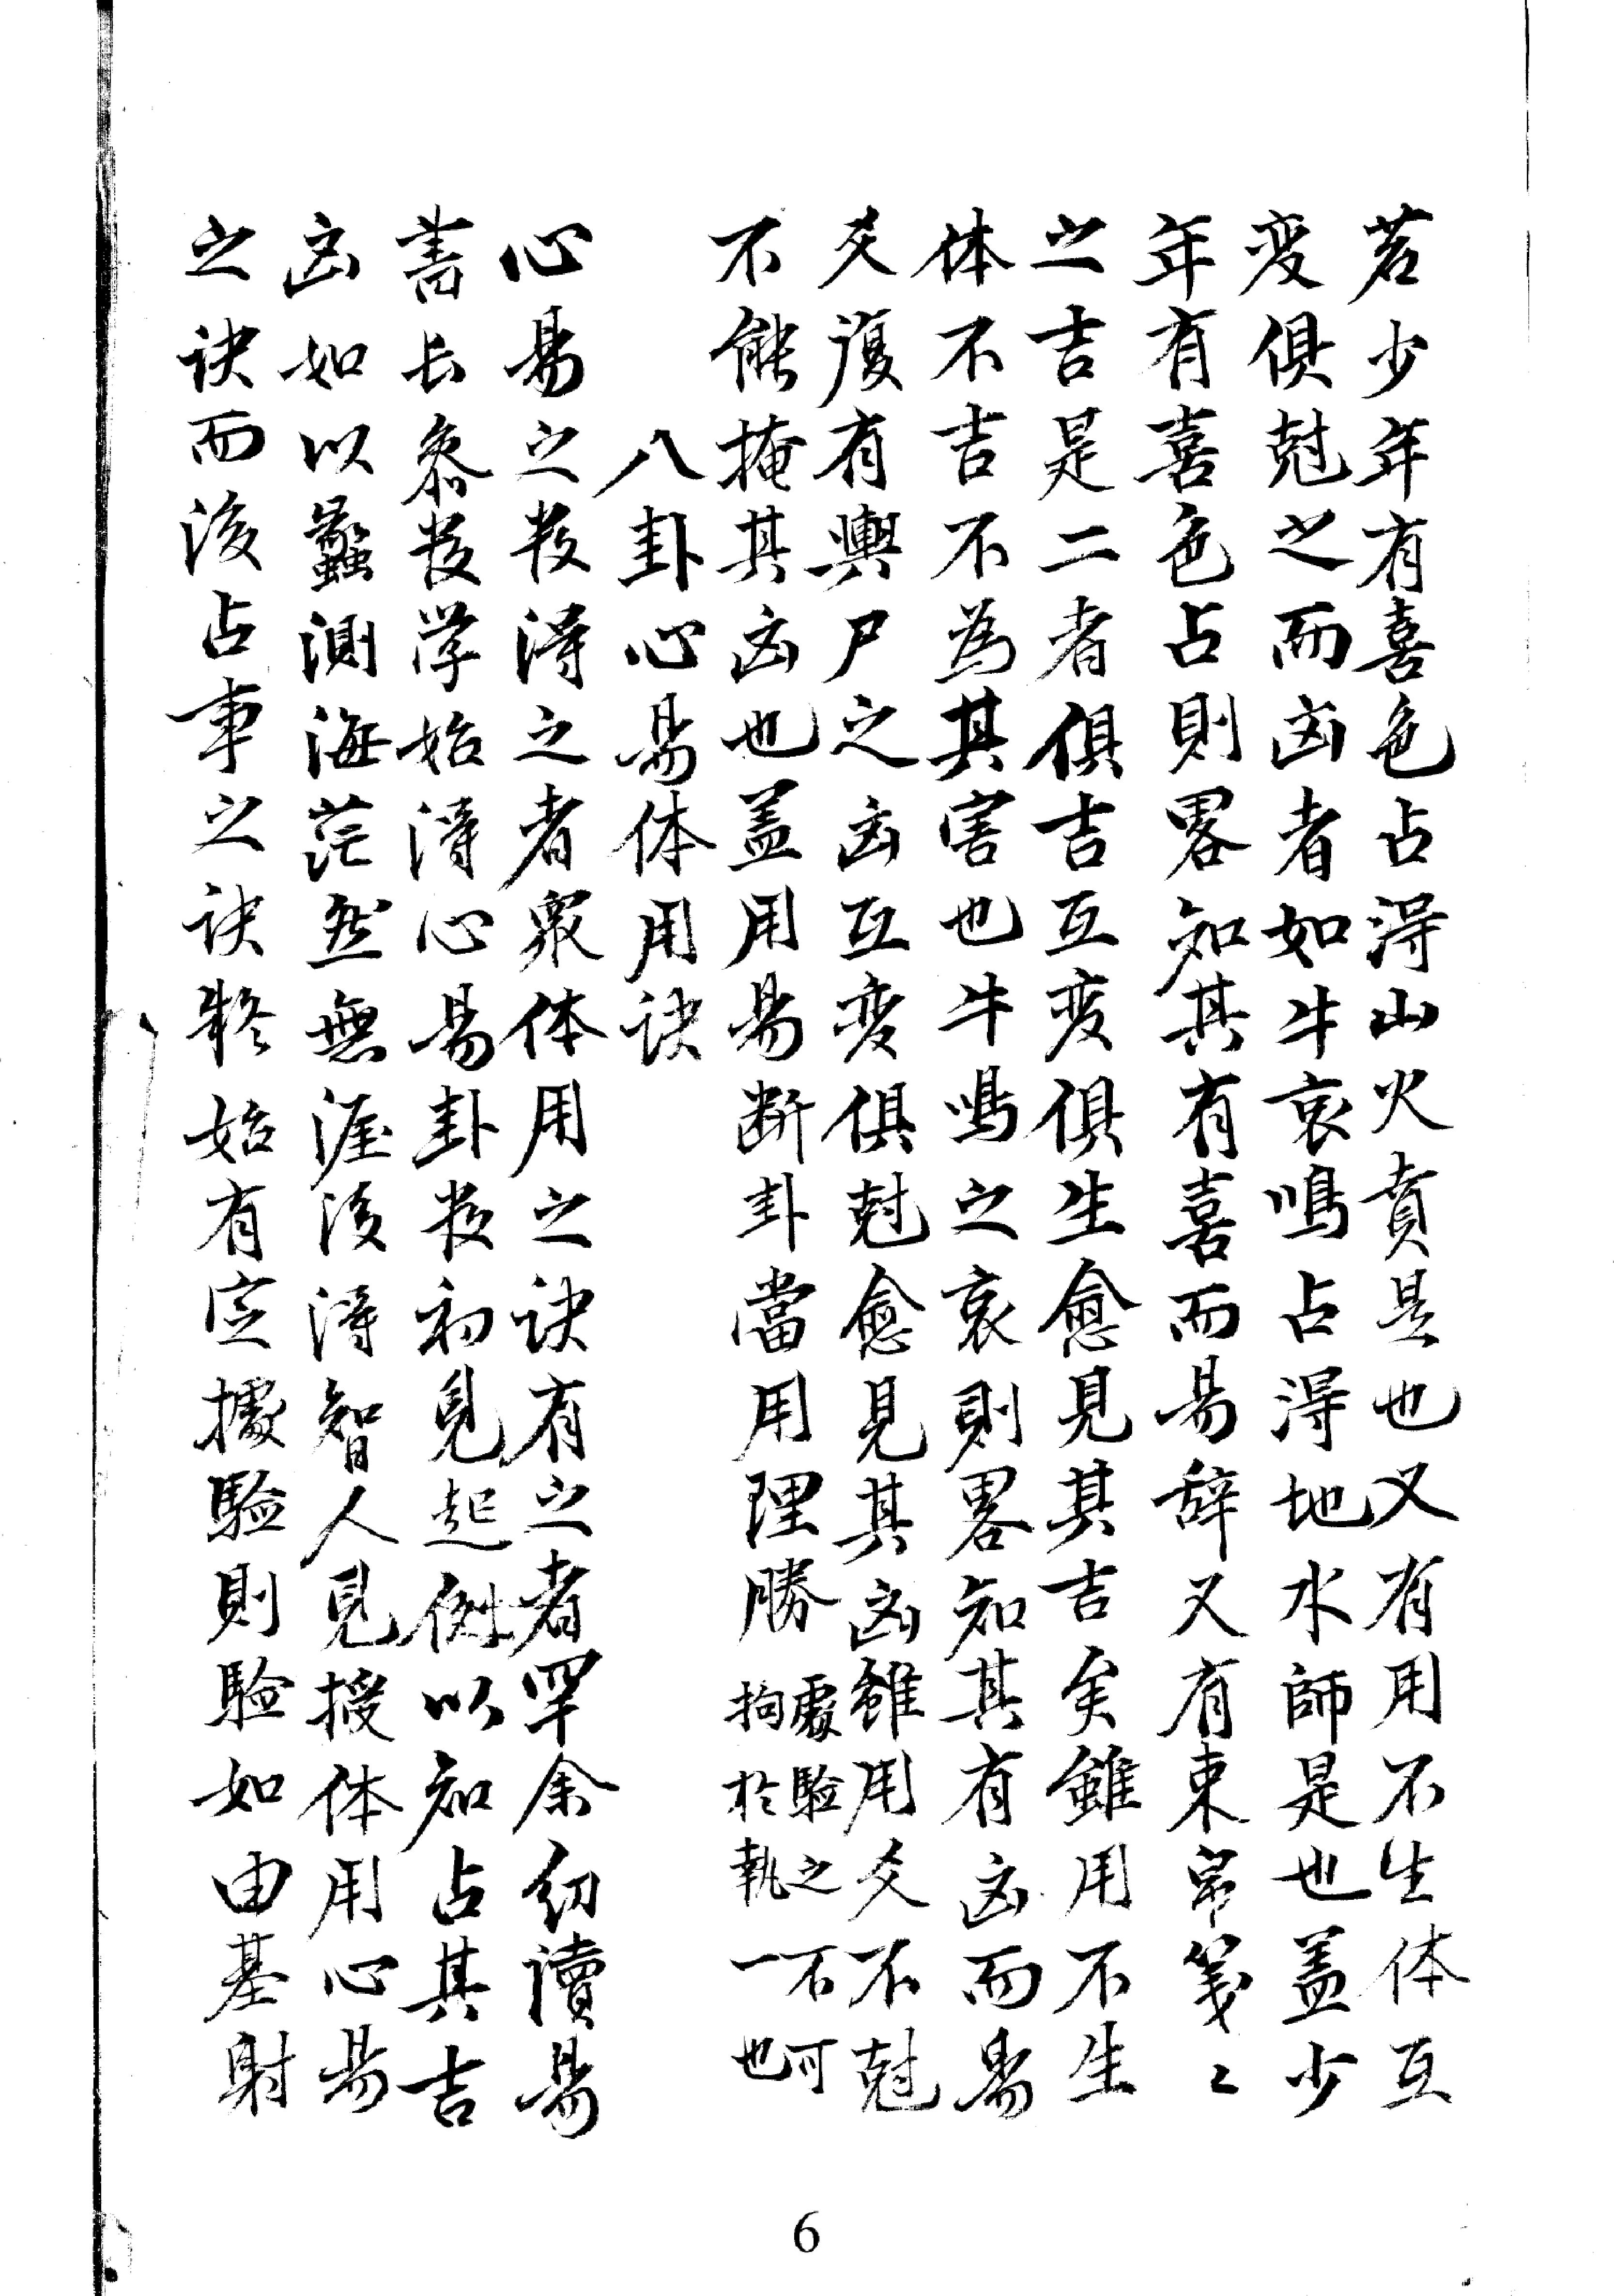 若少年有喜色占得山火賁是也又有用不生体互
变俱尅之而凶者如牛哀鳴占得地水師是也盖少
年有喜色占則畧知其有喜而易辞又有束帛箋〻
之吉是二者俱吉互变俱生愈見其吉矣雖用不生
体不吉不為其害也牛鳴之哀則畧知其有凶而易
爻復有輿尸之凶互变俱尅愈見其凶雖用爻不尅
不能掩其凶也盖用易断卦當用理勝處驗之不可
拘於執一也
八卦心易体用訣
心易之数得之者衆体用之訣有之者罕余幼讀易
書長参数学始得心易卦数初見起例以知占其吉
凶如以蠡測海茫然無涯後得智人見授体用心易
之訣而後占事之訣疑始有定據驗則驗如由基射
6